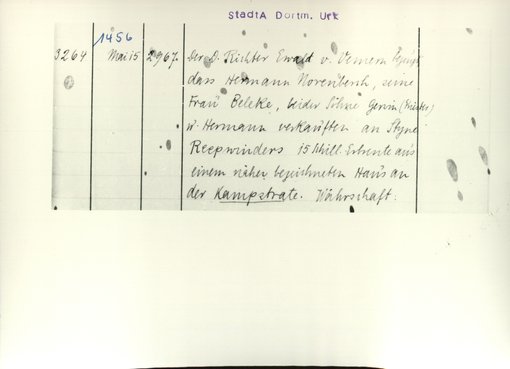 StadtA Dortm. Urk
1456
3264 Mai 15 2967. Der D. Richter Ewald v. Vemern bezeugt
dass Hermann Norenberch, seine
Frau Beleke, beider Söhne Gerwin (Priester)
u. Hermann verkauften an Styne
Reepwinders 15 Schill. Erbrente aus
einem näher bezeichneten Haus an
der Kampstrate. Währschaft.